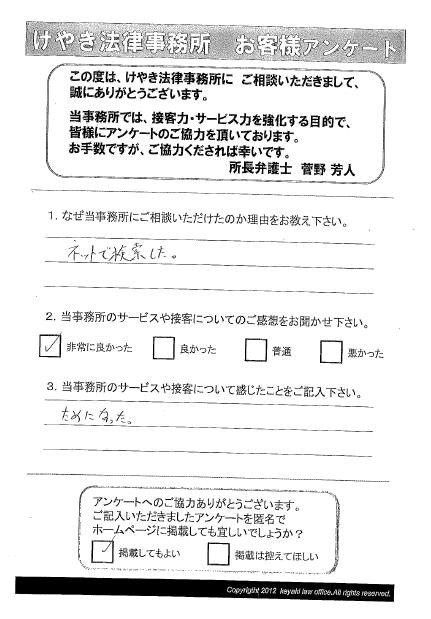 けやき法律事務所 お客様アンケート
この度は、けやき法律事務所に ご相談いただきまして、
誠にありがとうございます。
当事務所では、接客力・サービス力を強化する目的で、
皆様にアンケートのご協力を頂いております。
お手数ですが、ご協力くだされば幸いです。
所長弁護士 菅野 芳人
1. なぜ当事務所にご相談いただけたのか理由をお教え下さい。
ネットで検索した。
2. 当事務所のサービスや接客についてのご感想をお聞かせ下さい。
非常に良かった 良かった 普通 悪かった
3. 当事務所のサービスや接客について感じたことをご記入下さい。
ためになった。
アンケートへのご協力ありがとうございます。
ご記入いただきましたアンケートを匿名で
ホームページに掲載しても宜しいでしょうか?
掲載してもよい 掲載は控えてほしい
Copyright 2012 keyaki law office.All rights reserved.